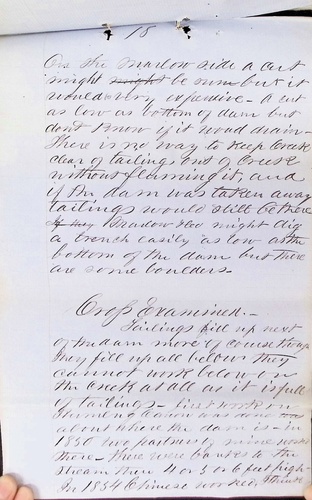 18
On the Marlow side a cut
might be run but it
would very expensive - A cut
as low as bottom of dam but
dont know if it woud drain -
There is no way to keep Creek
clear of tailings out of Creek
without fluming it, and
if the dam was taken away
tailings would still be there
Marlow & Co might dig
a trench easily as low as the
bottom of the dam but there
are some boulders -
Cross Examined. -
Tailings fill up next
of the dam more of course though
they fill up all below they
cannot work below on
the Creek at all as it is full
of tailings - first work on
was done
about where the dam is - in
1850 two partners of mine work
there - there were banks to the
stream then 4 or 5 or 6 feet high -
In 1854 Chinese worked,